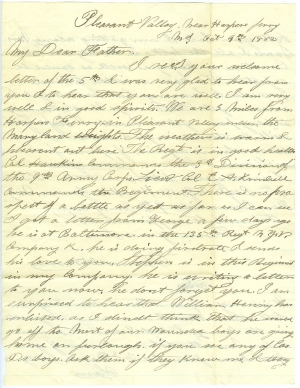 Pleasant Valley, Near Harpers Ferry
Md Oct 9th 1862
My Dear Father.
I recd your welcome
letter of the 5th I was very glad to hear from
you & to hear that you are well. I am very
well & in good spirits. We are 3 Miles from
Harpers Ferry, in Pleasant Valley near the
Maryland Heights. The weather is warm &
pleasant out here. The Regt is in good health
Col Hawkins commands the 3rd Division of
the 9th Army Corps Lieut Col E
commands the Regiment. There is no pros
pect of a battle as yet as far as I can see
I got a letter from George a few days ago
he is at Baltimore in the 135th Regt N.Y.V
Company K. he is doing firstrate & sends
his love to you. Stephen is in this Regiment
in my Company, he is writing a letter
to you now. We dont forget you. I am
surprised to hear that William Henry has
enlisted. as I didnt think that he
go off to War. of our boys are going
home on furlough. if you see any of Cos
boys. ask them if they know me. I